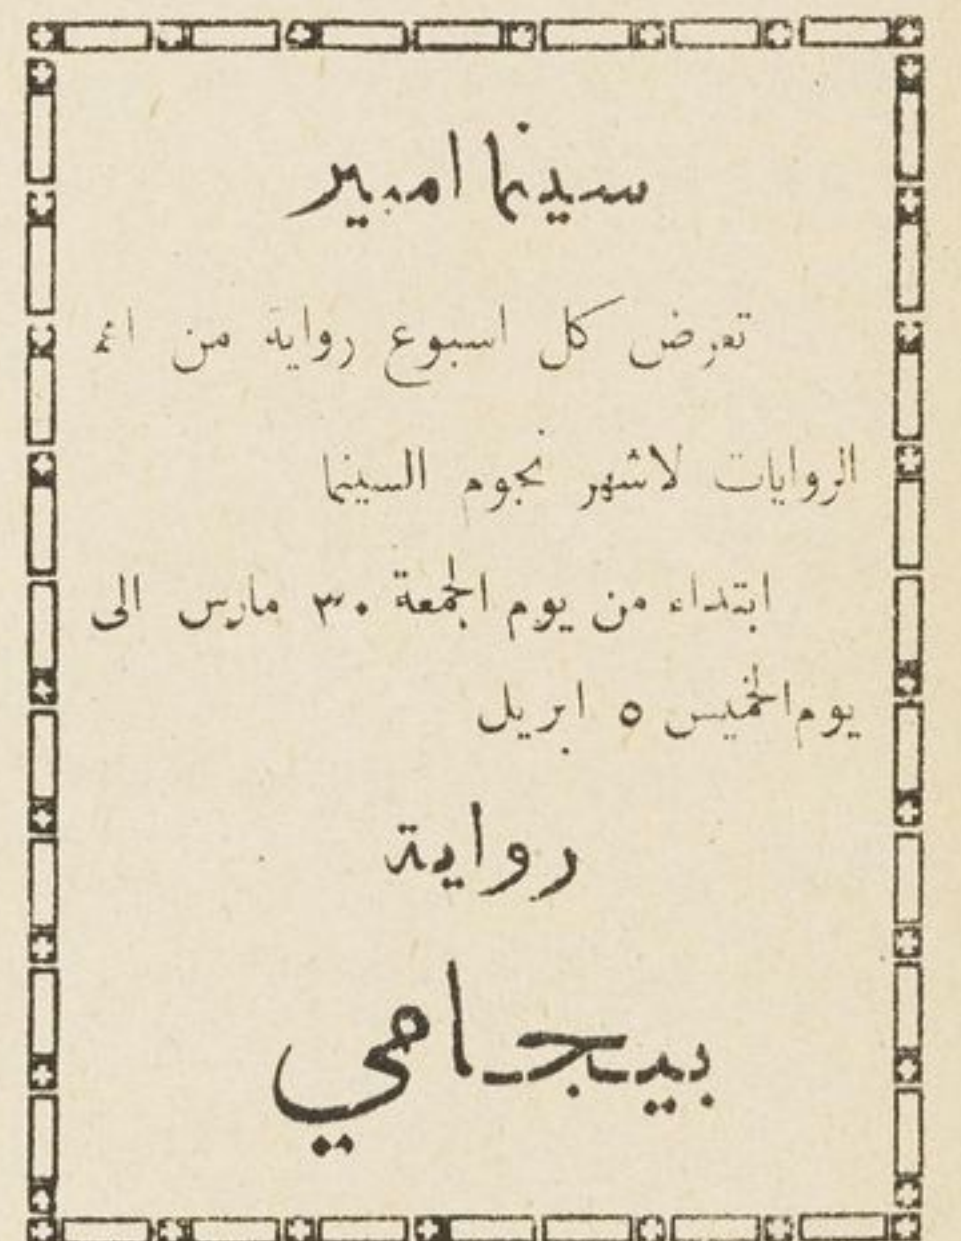 سينما امبير
تعرض كل اسبوع رواية من اتم
الروايات لاشهر نجوم السينما
ابتداء من يوم الجمعة ٣٠ مارس الى
يوم الخميس ٥ ابريل
رواية
بيجامي